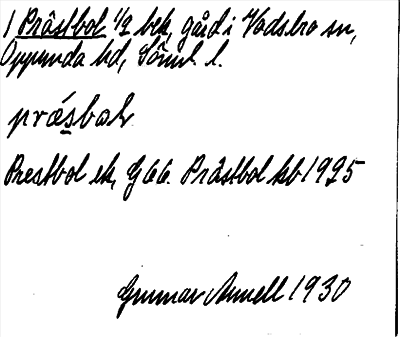 1 Prästbol 1/2 bek, gård i Vadsbro sn,
Oppunda hd, Söml. l.
præ´sboɫ
Prestbol ek, G 66. Prästbol kb 1925
Gunnar Annell 1930